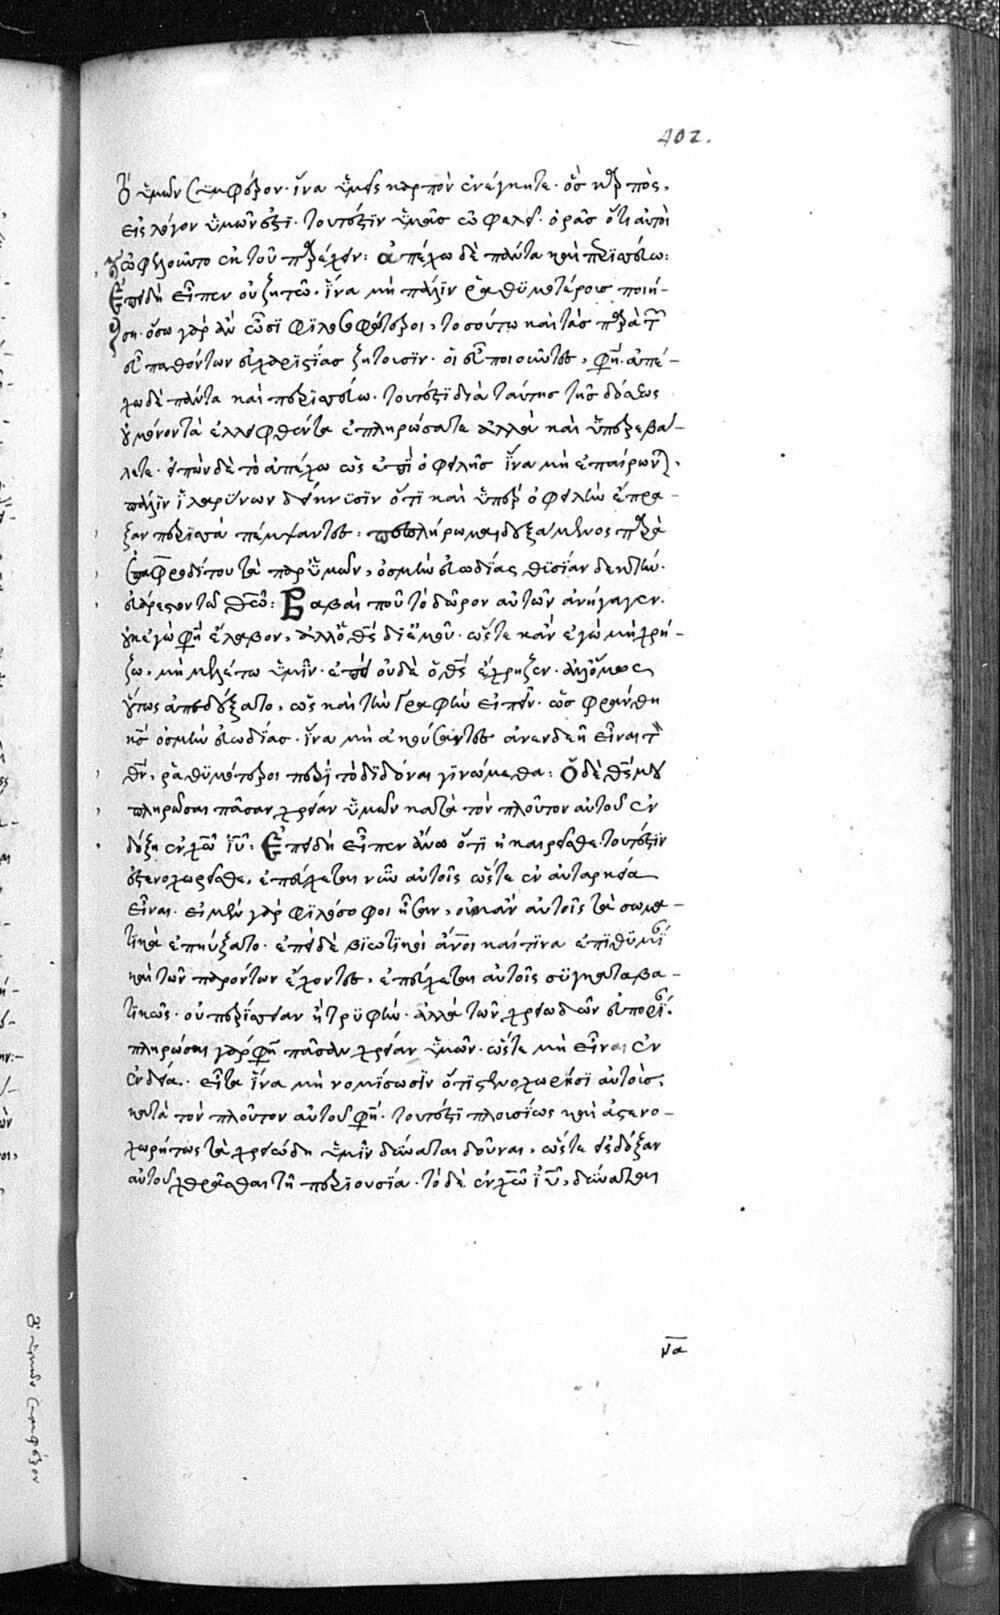 402.
ὑμῶν συμφέρον· ἵνα ὑμεῖς καρπὸν ἐνέγκητε· ὃς καρπὸς,
εἰς λόγον ὑμῶν ἐστι· τουτέστιν ὑμᾶς ὠφελεῖ· ὁρᾶς ὅτι αὐτοὶ
ὠφελοῦντο ἐκ τοῦ παρέχειν: ἀπέχω δὲ πάντα καὶ περισσεύω:
Ἐπειδὴ εἶπεν οὐ ζητῶ· ἵνα μὴ πάλιν ῥαθυμοτέρους ποιή-
ση· ὅσω γὰρ ἂν ὦσι φιλοσοφώτεροι, τοσούτω καὶ τὰς παρὰ τῶν
εὖ παθόντων εὐχαριστίας ζητοῦσιν· οἱ εὖ ποιοῦντες, φησὶν· ἀπέ-
χω δὲ πάντα καὶ περισσεύω· τουτέστι διὰ ταύτης τῆς δόσεως
οὐ μόνον τὰ ἐλλειφθέντα ἐπληρώσατε ἀλλὰ καὶ ὑπερεβά-
λετε· εἰπὼν δὲ τὸ ἀπέχω ὡς ἐπὶ ὀφειλῆς ἵνα μὴ ἐπαίρωνται,
πάλιν ἱλαρύνων δείκνυσιν ὅτι καὶ ὑπὲρ ὀφειλὴν ἔπρα-
ξαν περισσὰ πέμψαντες: πεπλήρωμαι δεξάμενος παρὰ
ἐπαφροδίτου τὰ παρ' ὑμῶν, ὀσμὴν εὐωδίας θυσίαν δεκτὴν·
εὐάρεστον τῷ θεῷ: Βαβαὶ ποῦ τὸ δῶρον αὐτῶν ἀνήγαγεν·
οὐκ ἐγώ φησιν ἔλαβον, ἀλλ' ὁ θεὸς δι' ἐμοῦ· ὥστε κἂν ἐγὼ μὴ χρή-
ζω, μὴ μελέτω ὑμῖν· ἐπεὶ οὐδὲ ὁ θεὸς ἔχρηζεν· ἀλλ' ὅμως
οὕτως ἀπεδέξατο, ὡς καὶ τὴν γραφὴν εἰπεῖν· ὠσφράνθη
κύριος ὀσμὴν εὐωδίας· ἵνα μὴ ἀκούσαντες ἀνενδεῆ εἶναι τὸν
θεὸν, ῥαθυμότεροι περὶ τὸ διδόναι γινώμεθα: Ὁ δὲ θεός μου
πληρώσαι πᾶσαν χρείαν ὑμῶν κατὰ τὸν πλοῦτον αὐτοῦ ἐν
δόξη ἐν χῶ ἰῦ: Ἐπειδὴ εἶπεν ἄνω ὅτι ἠκαιρεῖσθε· τουτέστιν
ἐστενοχωρεῖσθε, ἐπεύχεται νῦν αὐτοῖς ὥστε ἐν αὐταρκεία
εἶναι· εἰ μὲν γὰρ φιλόσοφοι ἦσαν, οὐκ ἂν αὐτοῖς τὰ σωμα-
τικὰ ἐπηύξατο· ἐπεὶ δὲ βιωτικοὶ ἄνοι καί τινα ἐπιθυμίαν
καὶ τῶν παρόντων ἔχοντες, ἐπεύχεται αὐτοῖς συγκαταβα-
τικῶς· οὐ περισσείαν ἢ τρυφὴν· ἀλλὰ τῶν χρειωδῶν εὐπορίαν·
πληρώσαι γάρ φησι πᾶσαν χρείαν ὑμῶν· ὥστε μὴ εἶναι ἐν
ἐνδεία· εἶτα ἵνα μὴ νομίσωσιν ὅτι στενοχωρήσει αὐτοὺς,
κατὰ τὸν πλοῦτον αὐτοῦ φησὶ· τουτέστι πλουσίως καὶ ἀστενο-
χωρήτως τὰ χρειώδη ὑμῖν δύναται δοῦναι, ὥστε εἰς δόξαν
αὐτοῦ χρᾶσθαι τῆ περιουσία· τὸ δὲ ἐν χῶ ἰῦ, δύναται
να
ὑμῶν συμφέρον